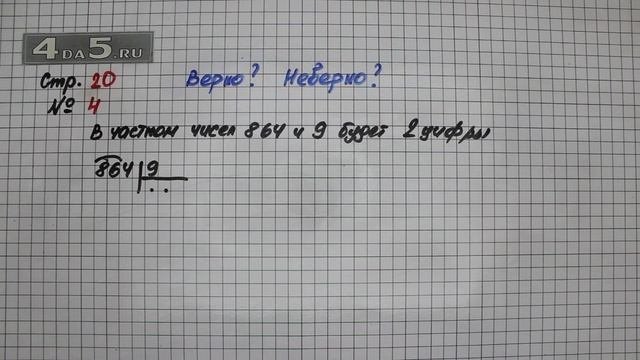 4DA5.RU
Стр. 20 Верно? Неверно?
№ 4
В частном чисел 864 и 9 будет 2 цифры
864 9
. .